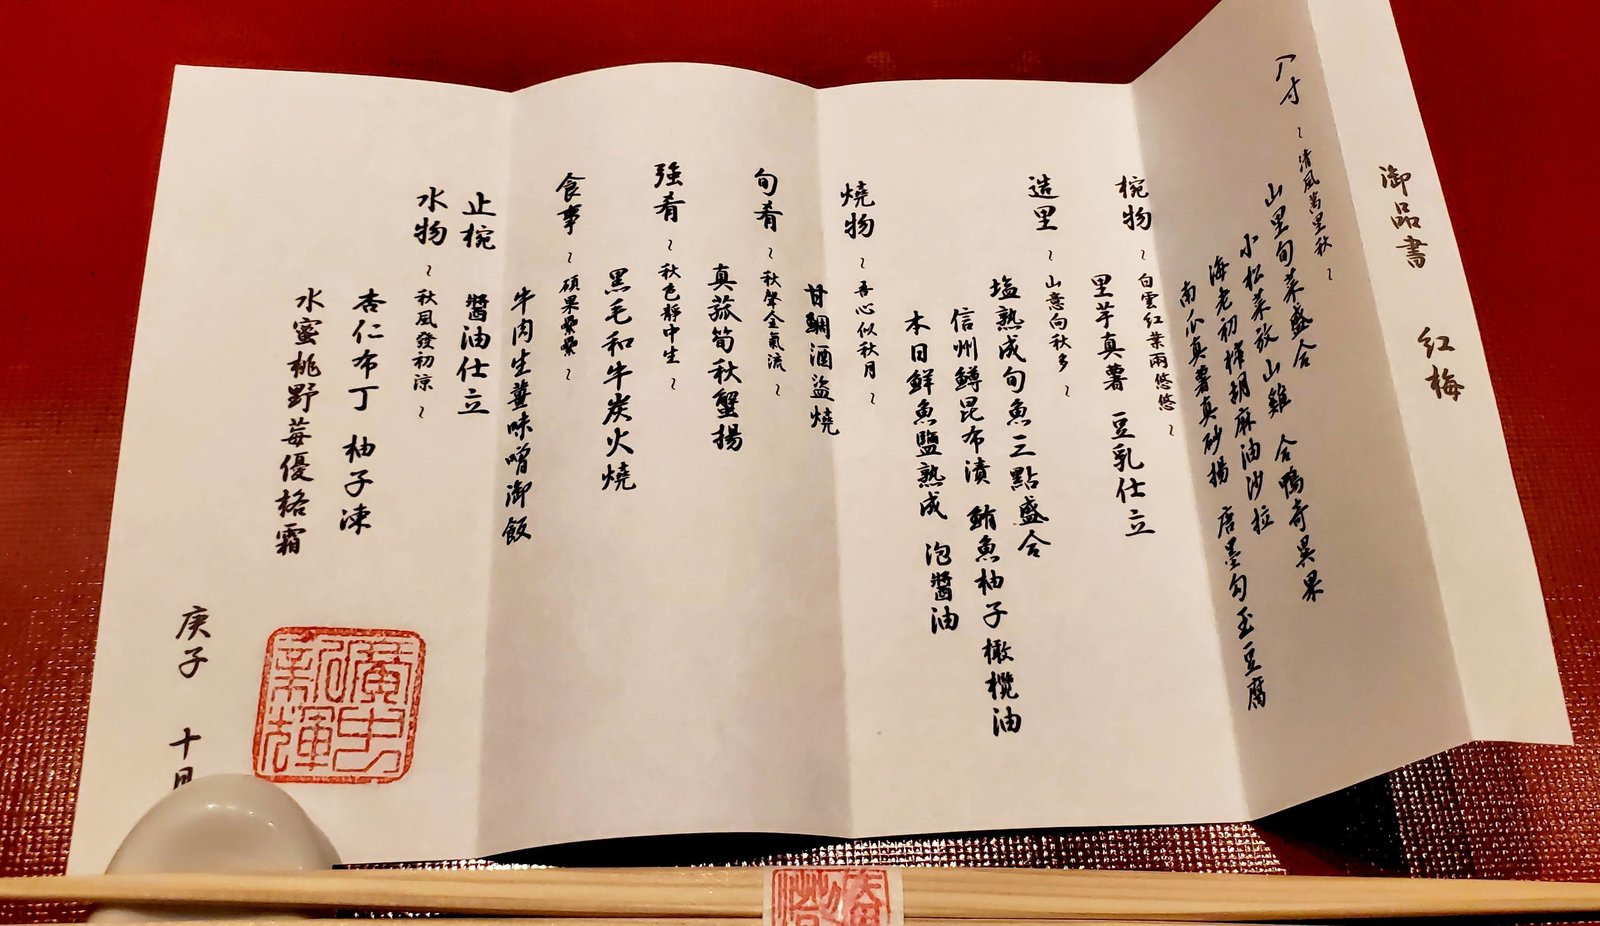 御品書 紅梅
八寸 ~清風萬里秋~
山里旬菜盛合 合鴨奇異果
小松菜放山雞
海老初檡胡麻油沙拉
南瓜真薯真砂揚 唐墨勾玉豆腐
椀物 ~白雲紅葉兩悠悠~
里芋真薯 豆乳仕立
造里 ~山意向秋多~
塩熟成旬魚三點盛合
信州鱒昆布漬 鮪魚柚子橄欖油
本日鮮魚鹽熟成 泡醬油
燒物 ~吾心似秋月~
甘鯛酒盜燒
旬肴 ~秋聲金氣流~
真菰筍秋蟹揚
強肴 ~秋色靜中生~
黑毛和牛炭火燒
食事 ~碩果纍纍~
牛肉生薑味噌御飯
止椀 醬油仕立
水物 ~秋風發初涼~
杏仁布丁 柚子凍
水蜜桃野莓優格霜
庚子 十月